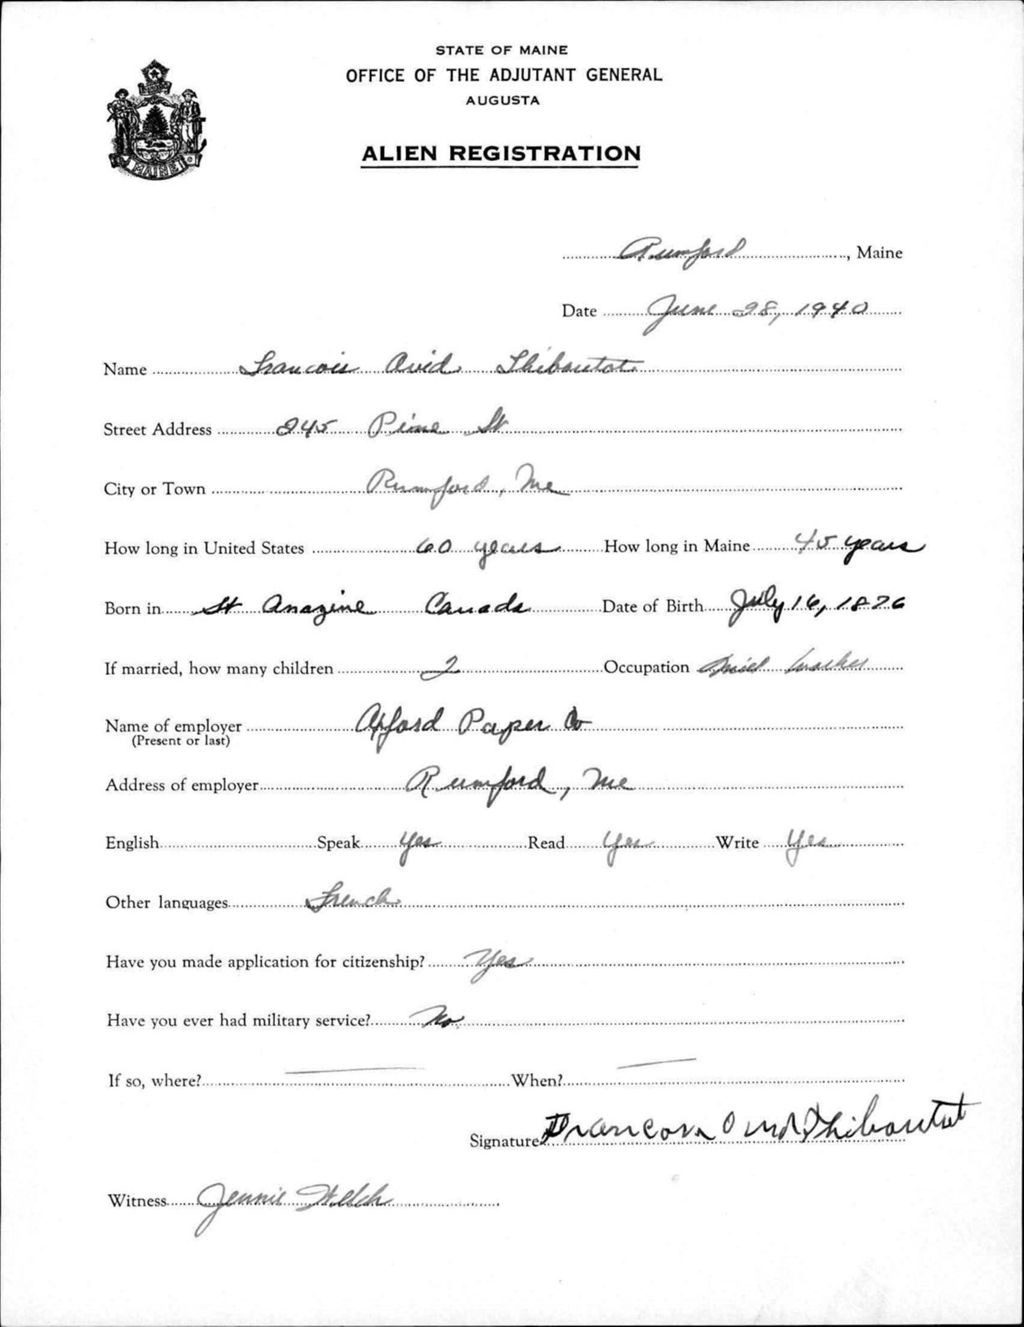 STATE OF MAINE
OFFICE OF THE ADJUTANT GENERAL
AUGUSTA
MAINE
ALIEN REGISTRATION
Rumford, Maine
Date June 28, 1940
Name Francois Ovid Thiboutot
Street Address 245 Pine St
City or Town Rumford, Me
How long in United States 60 years How long in Maine 45 years
Born in St Anazine Canada Date of Birth July 16, 1876
If married, how many children 2 Occupation Mill worker
Name of employer Oxford Paper Co
(Present or last)
Address of employer Rumford, Me
English Speak Yes Read Yes Write Yes
Other languages French
Have you made application for citizenship? Yes
Have you ever had military service? No
If so, where? When?
Signature Francois Ovid Thiboutot
Witness Jennie Welch